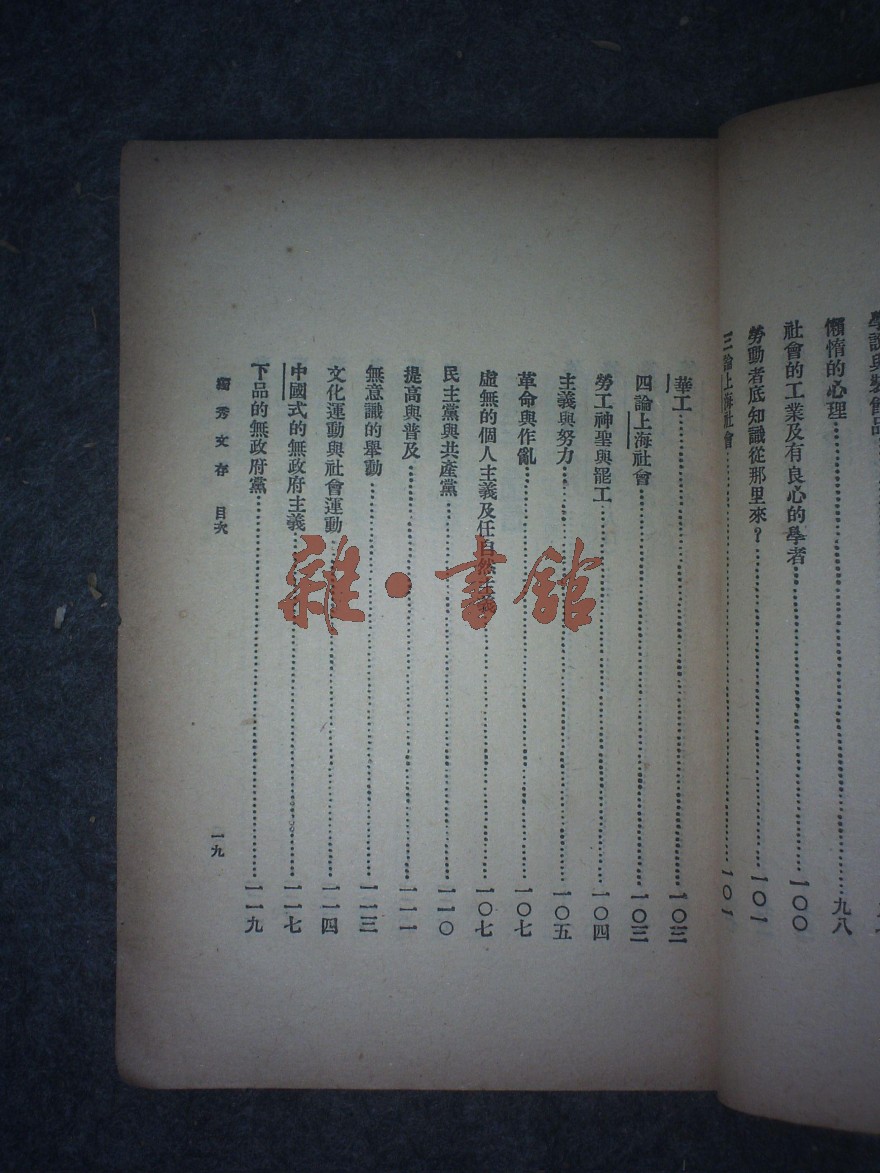 學說與裝飾品
懶惰的心理……九八
社會的工業及有良心的學者……一〇〇
勞動者底知識從那里來？……一〇一
三論上海社會……一〇一
華工……一〇三
四論上海社會……一〇三
勞工神聖與罷工……一〇四
主義與努力……一〇五
革命與作亂……一〇七
虛無的個人主義及任自然主義……一〇七
民主黨與共產黨……一一〇
提高與普及……一一一
無意識的舉動……一一三
文化運動與社會運動……一一四
中國式的無政府主義……一一七
下品的無政府黨……一一九
獨秀文存 目次 一九
雜·書館